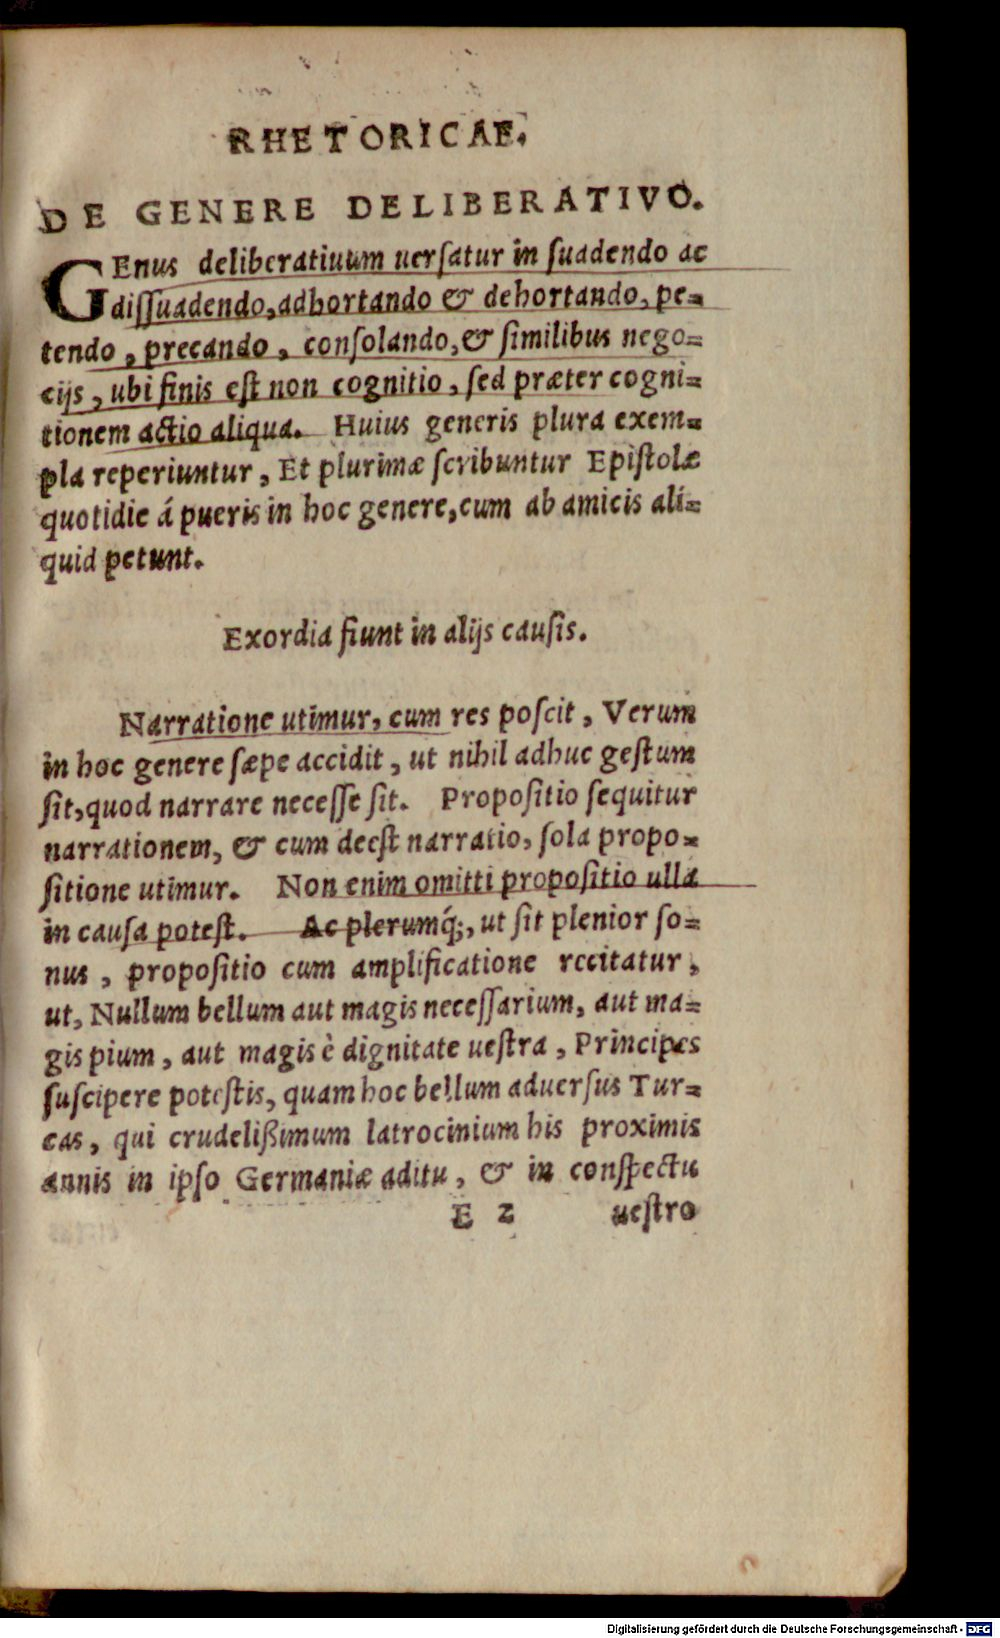 RHETORICAE.
DE GENERE DELIBERATIVO.
GEnus deliberatiuum uersatur in suadendo ac
dissuadendo, adhortando & dehortando, pe=
tendo, precando, consolando, & similibus nego=
cijs, ubi finis est non cognitio, sed præter cogni=
tionem actio aliqua. Huius generis plura exem=
pla reperiuntur, Et plurimæ scribuntur Epistolæ
quotidie á pueris in hoc genere, cum ab amicis ali=
quid petunt.
Exordia fiunt in alijs causis.
Narratione utimur, cum res poscit, Verum
in hoc genere sæpe accidit, ut nihil adhuc gestum
sit, quod narrare necesse sit. Propositio sequitur
narrationem, & cum deest narratio, sola propo=
sitione utimur. Non enim omitti propositio ulla
in causa potest. Ac plerumq́;, ut sit plenior so=
nus, propositio cum amplificatione recitatur,
ut, Nullum bellum aut magis necessarium, aut ma=
gis pium, aut magis è dignitate uestra, Principes
suscipere potestis, quam hoc bellum aduersus Tur=
cas, qui crudelißimum latrocinium his proximis
annis in ipso Germaniæ aditu, & in conspectu
E 2 uestro
Digitalisierung gefördert durch die Deutsche Forschungsgemeinschaft - DFG